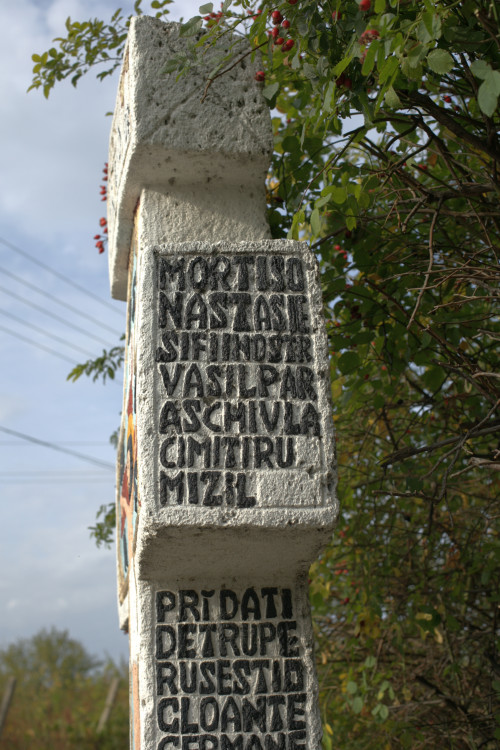 MORTI SO
NASTASIE
SI FIINDSTR
VASIL PAR
ASCHIV LA
CIMITIRU
MIZIL
PRĬDATI
DE TRUPE
RUSESTI D
CLOANTE
GERMANE